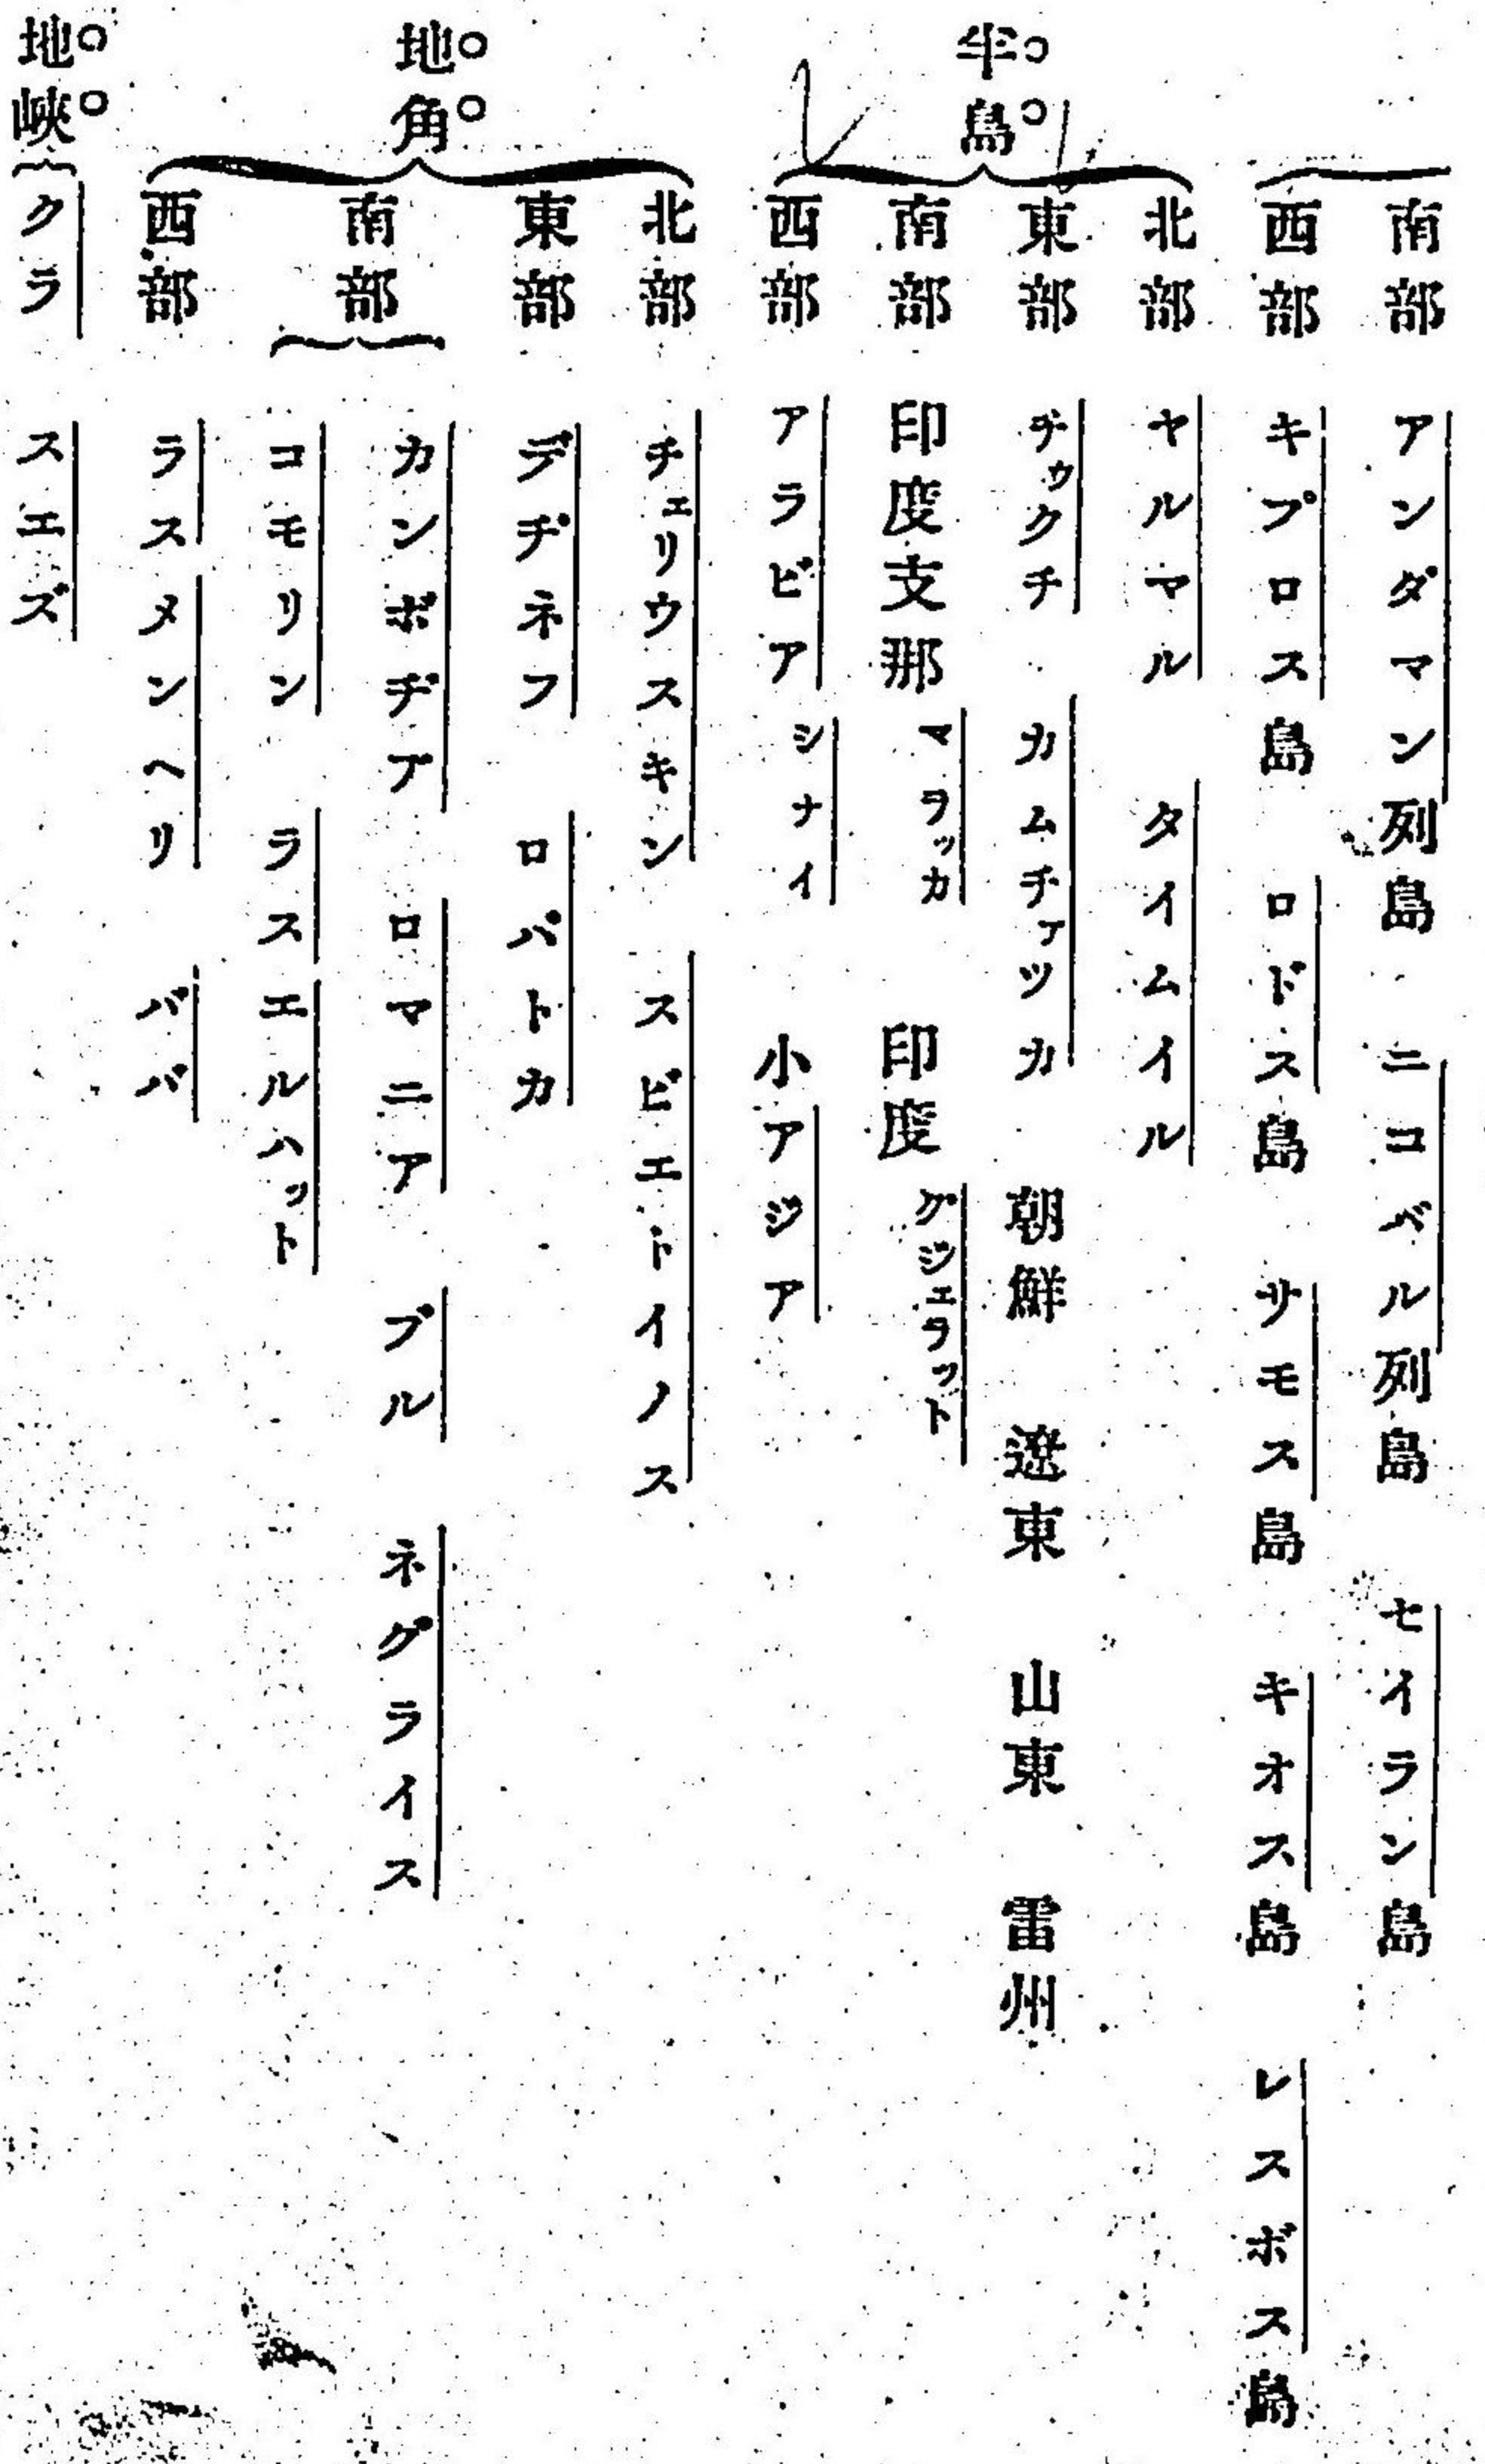 南部 アンダマン列島 ニコバル列島 セイラン島
西部 キプロス島 ロドス島 サモス島 キオス島 レスボス島
半島
北部 ヤルマル タイムイル
東部 チゥクチ カムチァツカ 朝鮮 遼東 山東 雷州
南部 印度支那 マラッカ 印度 グジェラット
西部 アラビア シナイ 小アジア
地角
北部 チェリウスキン スビエトイノス
東部 デヂネフ ロパトカ
南部
カンボヂア ロマニア ブル ネグライス
コモリン ラスエルハット
西部 ラスメンヘリ ババ
地峡
クラ スエズ